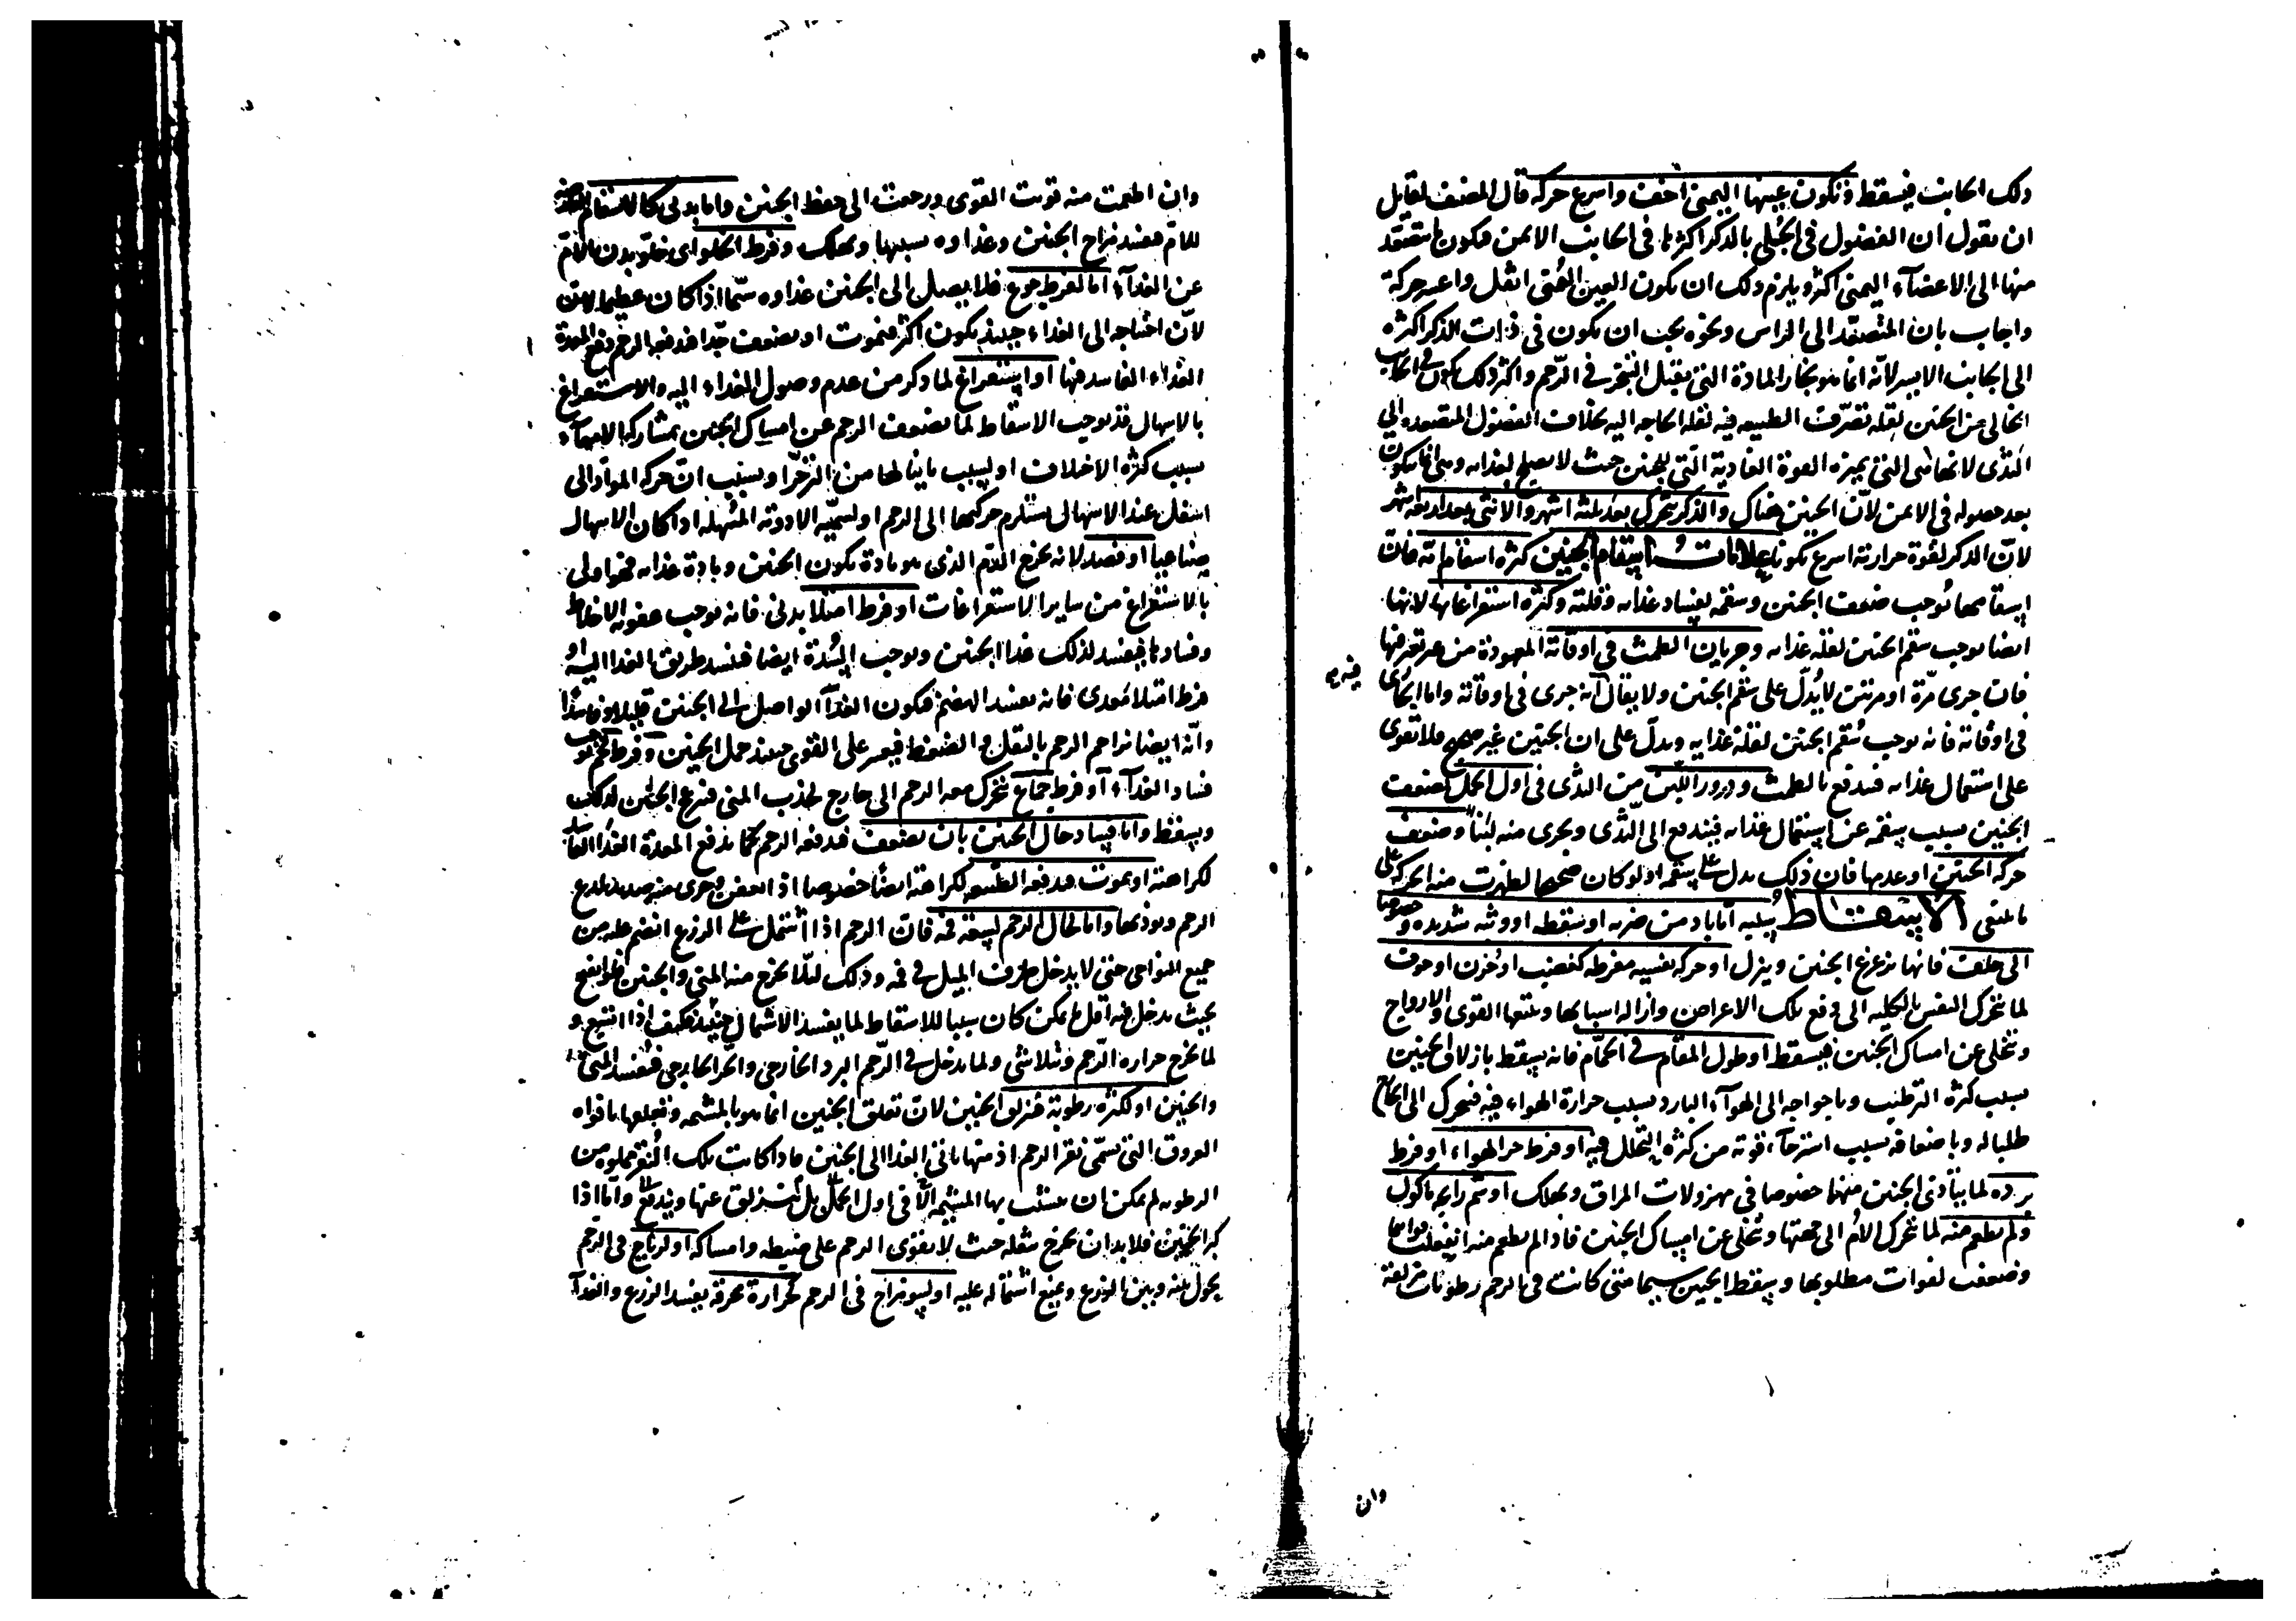 ذلك الجانب فيسقط وتكون عينها اليمنى اخف واسرع حركة قال المصنف لقايل
ان يقول ان الفضول في الحبلى بالذكر اكثرها في الجانب الايمن فيكون ما يتصعد
منها الى الاعضاء اليمنى اكثر ويلزم ذلك ان يكون العين اليمنى اثقل واعسر حركة
واجاب بان المتصعد الى الراس ونحوه يجب ان يكون في ذات الذكر اكثره
الى الجانب الايسر لانه انما هو بخار المادة التي يقبل التبخر في الرحم واكثر ذلك يكون في الجانب
الخالي عن الجنين لقلة تصرف الطبيعه فيه لقلة الحاجه اليه بخلاف الفضول المتصعده الى
الثدى لانها هي التي يميزه القوة الغاذية التي للجنين حيث لا يصلح لغذائه وهي انما يكون
بعد حصوله في الايمن لان الجنين هناك والذكر يتحرك بعد ثلثة اشهر والانثى بعد اربعة اشهر
لان الذكر لقوة حرارته اسرع تكونا علامات اسقام الجنين كثرة اسقام امه فان
اسقامها توجب ضعف الجنين وسقمه لفساد غذائه وقلته وكثرة استفراغاتها لانها
ايضا يوجب سقم الجنين لقلة غذائه وجريان الطمث في اوقاته المعهودة من غير تعرضها
فان جرى مرة او مرتين لا يدل على سقم الجنين ولا يقال انه جرى في اوقاته واما الجارى
في اوقاته فانه يوجب سقم الجنين لقلة غذايه ويدل على ان الجنين غير صحيح فلا يقوى
على استعمال غذائه فيندفع بالطمث ودرور اللبن من الثدى في اول الحمل لضعف
الجنين بسبب سقمه عن استعمال غذائه فيندفع الى الثدى ويجرى منه لبنا وضعف
حركة الجنين او عدمها فان ذلك يدل على سقمه اذ لو كان صحيحا لظهرت منه الحركة على
ما ينبغي الاسقاط سببه اما باد من ضربه او سقطه او وثبه شديده وخصوصا
الى خلف فانها يزعزع الجنين وينزل او حركه نفسيه مفرطه كغضب او حزن او خوف
لما تتحرك النفس بالكليه الى دفع تلك الاعراض وازالة اسبابها ويتبعها القوى والارواح
وتخلى عن امساك الجنين فيسقط او طول المقام في الحمام فانه يسقط بازلاق الجنين
بسبب كثرة الترطيب وباحواجه الى الهواء البارد بسبب حرارة الهواء فيه فيتحرك الى الخارج
طلبا له وباضعافه بسبب استرخاء قوته من كثرة التحلل فيه او فرط حر الهواء او فرط
برده لما يتاذى الجنين منهما خصوصا في مهزولات المراق ويهلك او شم رايحه ماكول
ولم يطعم منه لما تتحرك الام الى جهتها وتخلى عن امساك الجنين فاذا لم يطعم منه انفعلت قواها
وضعفت لفوات مطلوبها ويسقط الجنين سيما متى كانت في الرحم رطوبات مزلقة
وان
وان اطعمت منه قويت القوى ورجعت الى حفظ الجنين واما بدنى كالاسقام
للام فيفسد مزاج الجنين وغذاوه بسببها ويهلك وفرط الخلو اى خلو بدن الام
عن الغذاء اما لفرط جوع فلا يصل الى الجنين غذاوه سيما اذا كان عظيما
لان احتياجه الى الغذاء حينئذ يكون اكثر فيموت او يضعف جدا فيدفعه الرحم دفع المعدة
الغذاء الفاسد فيها او استفراغ لما ذكر من عدم وصول الغذاء اليه والاستفراغ
بالاسهال قد يوجب الاسقاط لما يضعف الرحم عن امساك الجنين بمشاركة الامعاء
بسبب كثرة الاختلاف او بسبب ما ينالها من الزحير او بسبب ان حركة المواد الى
اسفل عند الاسهال يستلزم حركتها الى الرحم او لسمية الادوية المسهلة اذا كان الاسهال
صناعيا او فصد لانه يخرج الدم الذى هو مادة تكون الجنين ومادة غذائه فهو اولى
بالاستفراغ من ساير الاستفراغات او فرط امتلا بدنى فانه يوجب عفونة الاخلاط
وفسادها فيفسد لذلك غذا الجنين ويوجب السدة ايضا فينسد طريق الغذا اليه او
فرط امتلا معدى فانه يفسد الهضم فيكون الغذاء الواصل الى الجنين قليلا وفاسدا
وانه ايضا يزاحم الرحم بالثقل والضغط فيعسر على القوى حينئذ حمل الجنين وفرط تخم توجب
فساد الغذاء او فرط جماع تتحرك معه الرحم الى خارج لجذب المنى فينزعج الجنين لذلك
ويسقط واما فساد حال الجنين بان يضعف فيدفعه الرحم كما يدفع المعدة الغذا الفاسد
لكراهته او يموت فيدفعه الطبيعه لكراهته ايضا خصوصا اذا تعفن وجرى منه صديد يلذع
الرحم ويوذيها واما لحال الرحم لسعة فمه فان الرحم اذا اشتمل على الزرع انضم فمه من
جميع النواحي حتى لا يدخل طرف الميل في فمه وذلك لئلا يخرج منه المنى والجنين فلو انفتح
بحيث يدخل فيه اقل ما يمكن كان سببا للاسقاط لما يفسد الاشتمال حينئذ فكيف اذا اتسع و
لما يخرج حرارة الرحم وتتلاشى ولما يدخل في الرحم البرد الخارجى والحر الخارجى فيفسد المنى
والجنين او لكثرة رطوبة فيزلق الجنين لان تعلق الجنين انما هو بالمشيمه وتعلقها بافواه
العروق التي تسمى نقر الرحم اذ منها ياتى الغذا الى الجنين فاذا كانت تلك النقر مملوه من
الرطوبه لم يمكن ان يتشبث بها المشيمه الا في اول الحمل بل تنزلق عنها ويندفع واما اذا
كبر الجنين فلا بد ان يخرج بثقله حيث لا يقوى الرحم على ضبطه وامساكه او لرياح في الرحم
يحول بينه وبين الزرع ويمنع اشتماله عليه او لسوء مزاج في الرحم لحرارة محرقة يفسد الزرع والغذاء